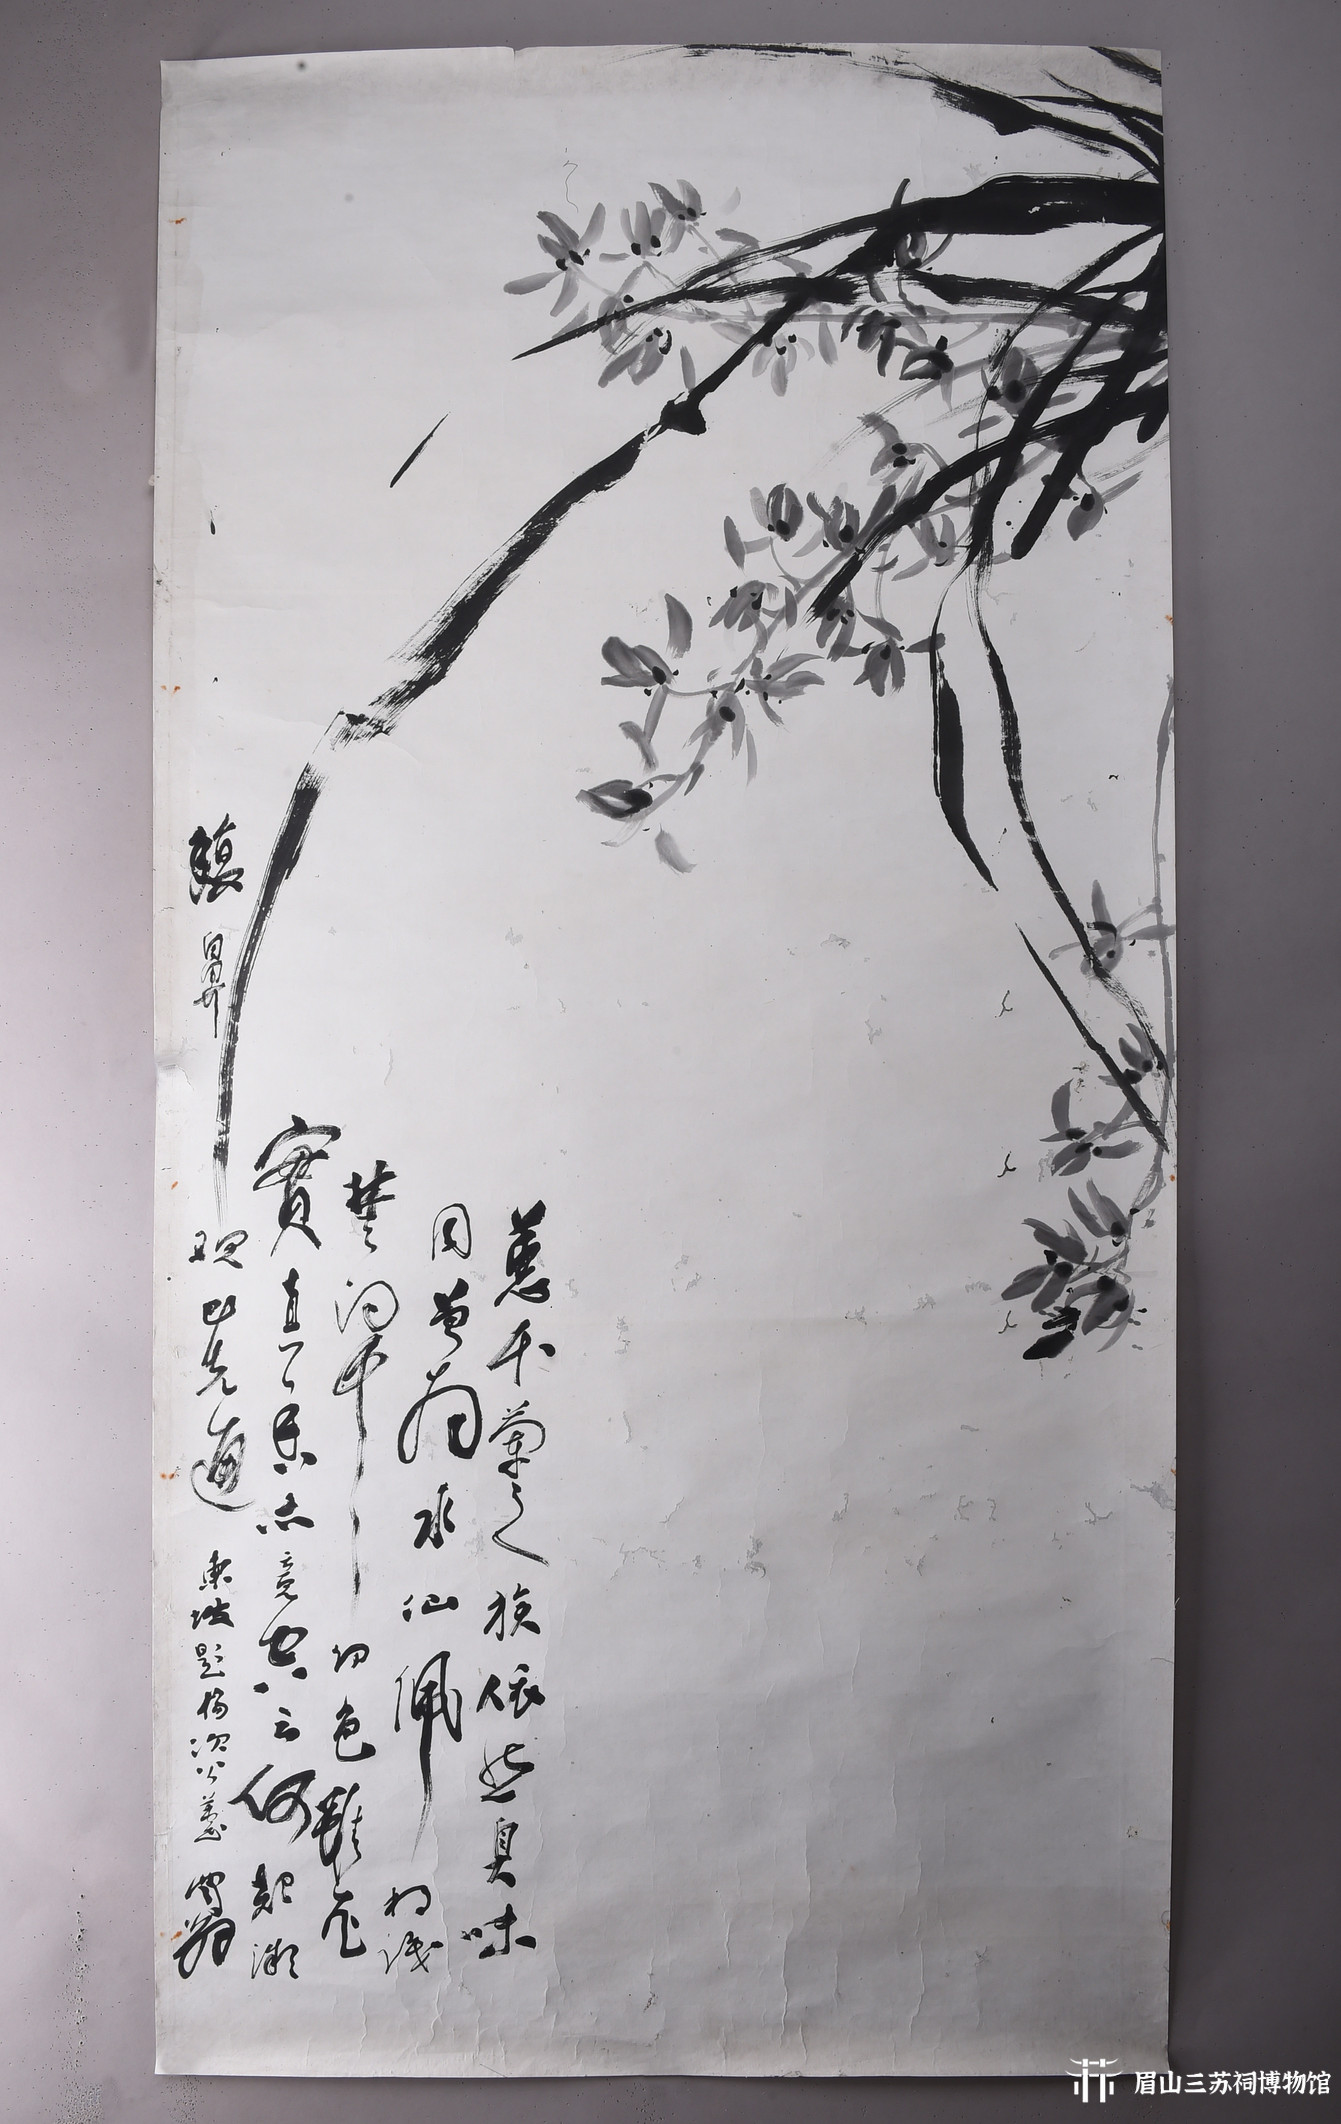 蕙本蘭之族依然臭味
同曾為水仙佩相識
楚詞中幻色雖非
實真香亦竟空云何起微
馥鼻觀已先通 東坡題楊次公蕙
眉山三苏祠博物馆